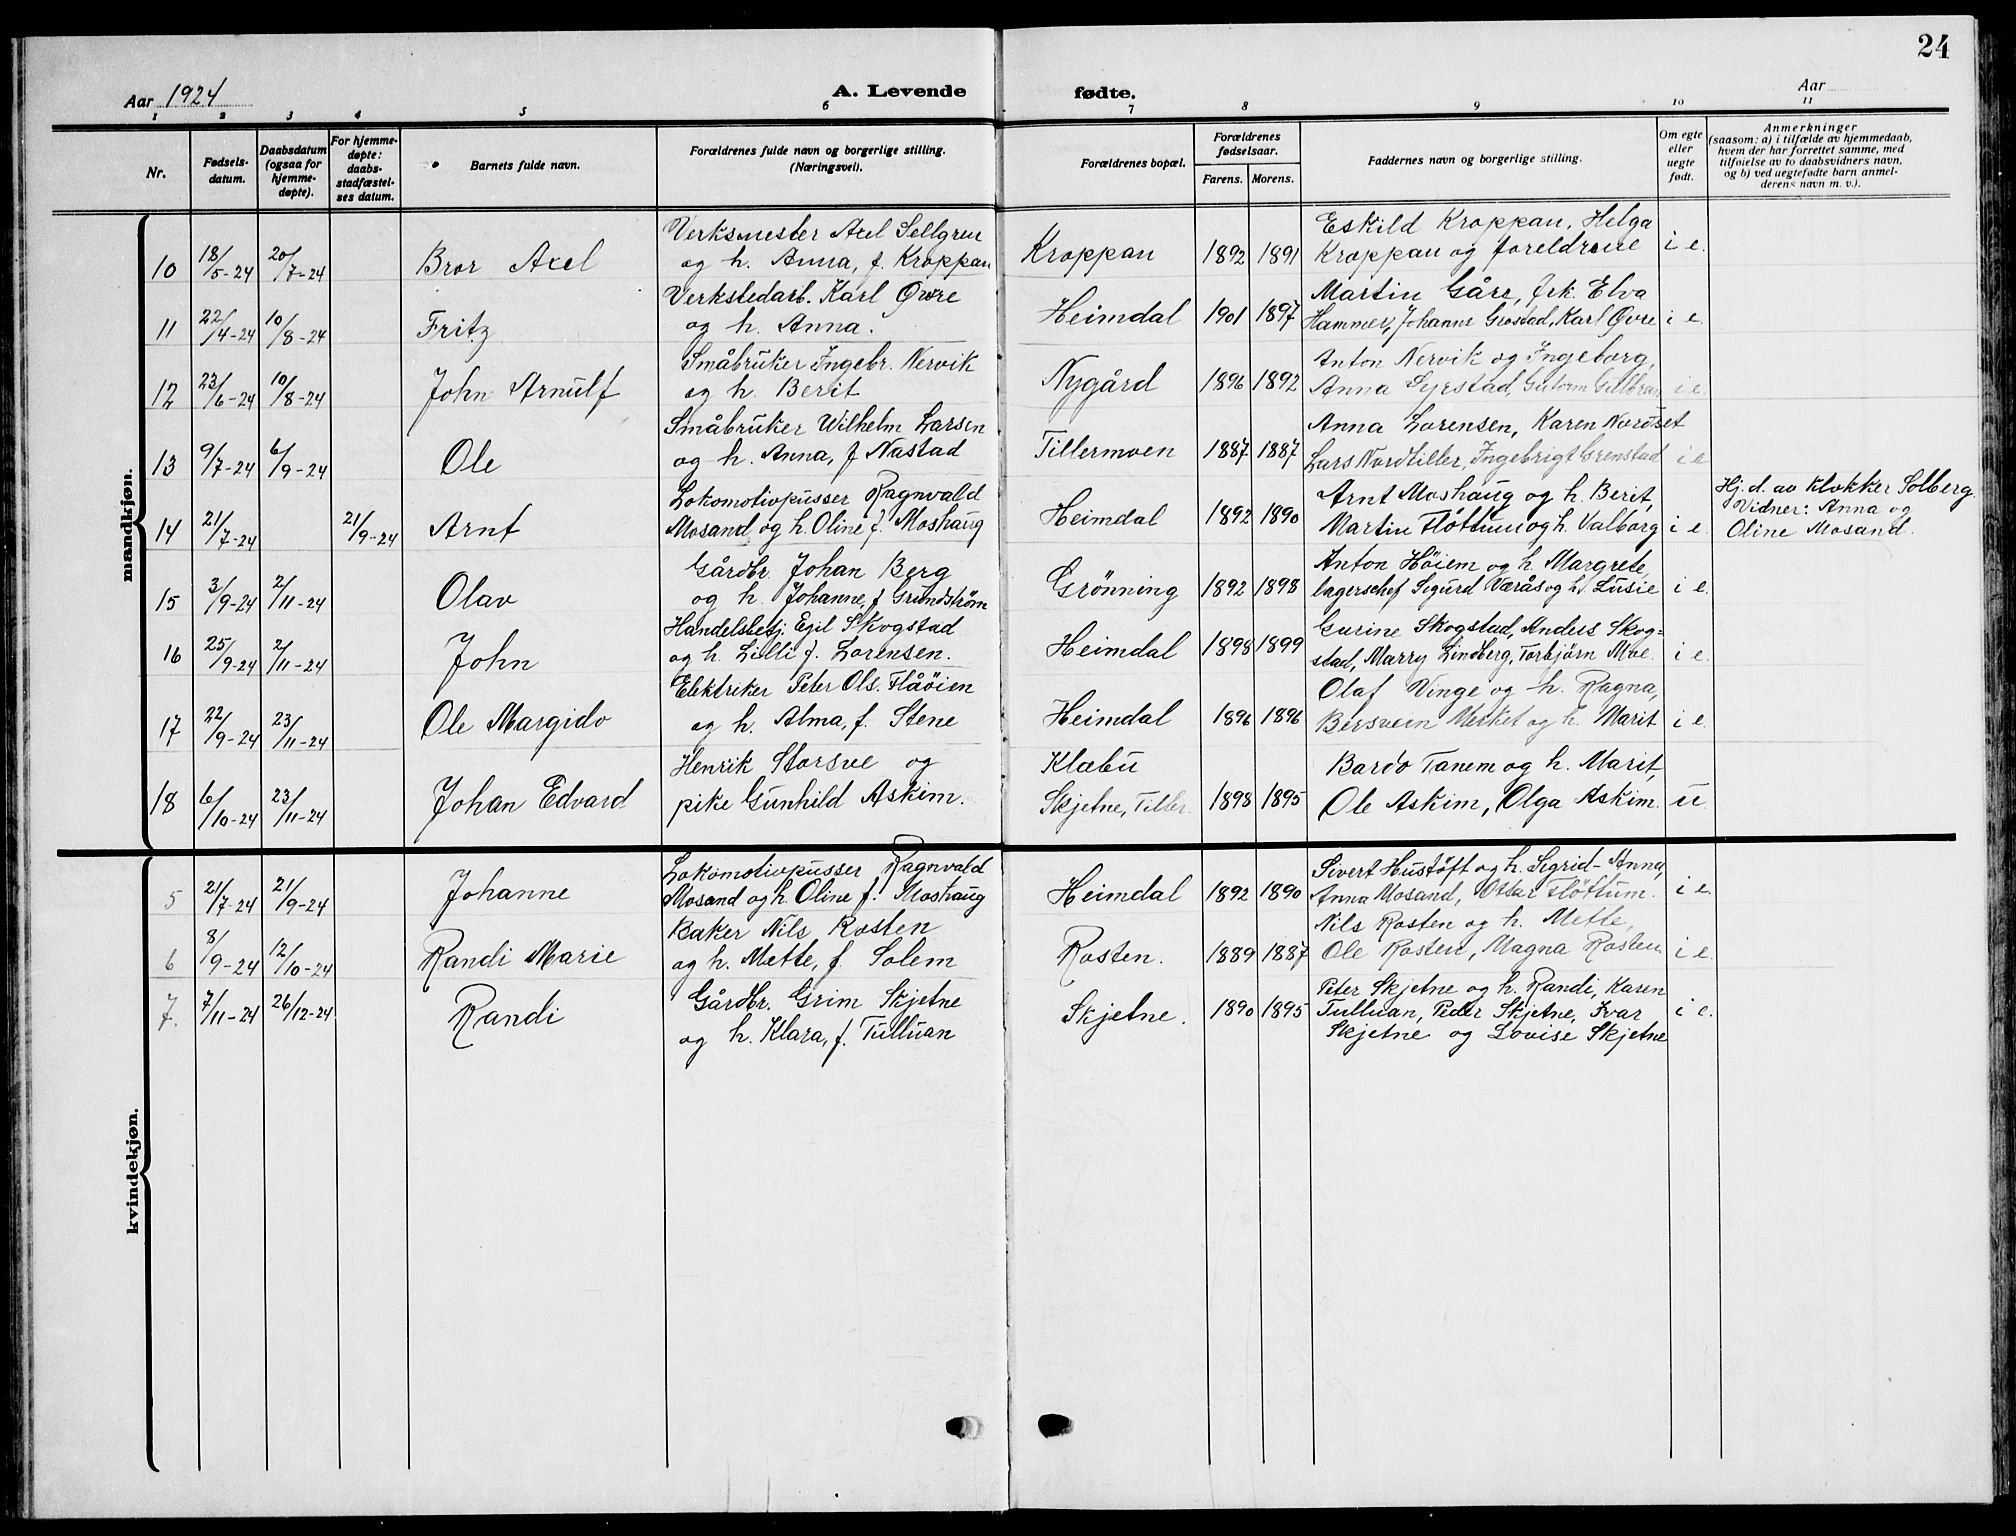 24
Aar 1924
A. Levende fødte.
Aar
1 2 3 4 5 6 7 8 9 10 11
Nr.
Fødsels-
datum.
Daabsdatum
(ogsaa for
hjemme-
døpte).
For hjemme-
døpte:
daabs-
stadfæstel-
ses datum.
Barnets fulde navn.
Forældrenes fulde navn og borgerlige stilling.
(Næringsvei).
Forældrenes bopæl.
Forældrenes
fødselsaar.
Farens. Morens.
Faddernes navn og borgerlige stilling.
Om egte
eller
uegte
født.
Anmerkninger
(saasom: a) i tilfælde av hjemmedaab,
hvem der har forrettet samme, med
tilføielse av to daabsvidners navn,
og b) ved uegtefødte barn anmel-
derens navn m. v.).
mandkjøn.
Verksmester Axel Sellgren Eskild Kroppan, Helga
10 18/5-24 20/7-24 Bror Axel og h. Anna, f. Kroppan Kroppan 1892 1891 Kroppan og foreldrene i e.
Verkstedarb. Karl Øvre Martin Gåre, frk. Elva
11 22/4-24 10/8-24 Fritz og h. Anna. Heimdal 1901 1897 Hammer, Johanne Grostad, Karl Øvre i e.
Småbruker Ingebr. Nervik Anton Nervik og Ingeborg,
12 23/6-24 10/8-24 John Arnulf og h. Berit Nygård 1896 1892 Anna Syrstad, Gutorm Gulbran i e.
Småbruker Wilhelm Larsen Anna Lorensen, Karen Nordset
13 9/7-24 6/9-24 Ole og h. Anna, f Nastad Tillermoen 1887 1887 Lars Nordtiller, Ingebrigt Grenstad i e
Lokomotivpusser Ragnvald Arnt Moshaug og h. Berit, Hj. d. av klokker Solberg.
14 21/7-24 21/9-24 Arnt Mosand og h. Oline f. Moshaug Heimdal 1892 1890 Martin Fløttum og h. Valborg i e. Vidner: Anna og
Oline Mosand.
Gårdbr. Johan Berg Anton Höiem og h. Margrete
15 3/9-24 2/11-24 Olav og h. Johanne, f Grundström Grønning 1892 1898 lagerschef Sigurd Værås og h. Lusie i e.
Handelsbetj. Egil Skogstad Gurine Skogstad, Anders Skog=
16 25/9-24 2/11-24 John og h. Lilli f. Lorensen. Heimdal 1898 1899 stad, Marry Lindberg, Torbjörn Moe. i e.
Elektriker Peter Ols. Flåöien Olaf Vinge og h. Ragna,
17 22/9-24 23/11-24 Ole Margido og h. Alma, f. Stene Heimdal 1896 1896 Bersvein Merket og h. Marit i e.
Henrik Storsve og Klæbu Bardo Tanem og h. Marit,
18 6/10-24 23/11-24 Johan Edvard pike Gunhild Askim. Skjetne, Tiller. 1898 1895 Ole Askim, Olga Askim. u.
kvindekjøn.
Lokomotivpusser Ragnvald Sivert Hustöft og h. Sigrid-Anna,
5 21/7-24 21/9-24 Johanne Mosand og h. Oline f. Moshaug Heimdal 1892 1890 Anna Mosand, Ottar Fløttum. i e.
Baker Nils Rosten Nils Rosten og h. Mette,
6 8/9-24 12/10-24 Randi Marie og h. Mette, f. Solem Rosten. 1889 1887 Ole Rosten, Magna Rosten i e.
Gårdbr. Grim Skjetne Peter Skjetne og h. Randi, Karen
7. 7/11-24 26/12-24 Randi og h. Klara, f. Tulluan Skjetne. 1890 1895 Tulluan, Peder Skjetne, Ivar i e.
Skjetne og Lovise Skjetne